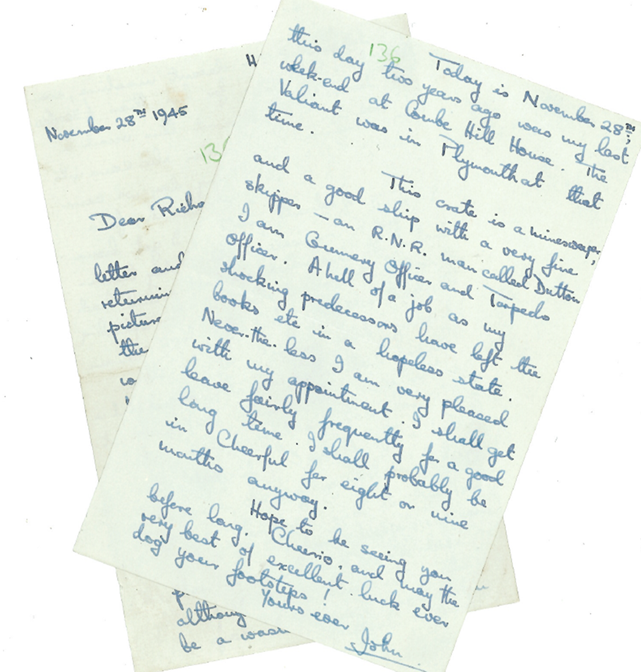 H
November 28TH 1945
13
Dear Richa
letter and
returning
picture
the
136
Today is November 28TH;
this day two years ago was my last
week-end at Combe Hill House. The
Valiant was in Plymouth at that
time.
This crate is a minesweeper,
and a good ship with a very fine
skipper - an R.N.R. man called Dutton
I am Gunnery Officer and Torpedo
Officer. A hell of a job as my
shocking predecessors have left the
books etc in a hopeless state.
Never-the-less I am very pleased
with my appointment. I shall get
leave fairly frequently for a good
long time. I shall probably be
in Cheerful for eight or nine
months anyway.
Hope to be seeing you
before long. Cheerio, and may the
very best of excellent luck ever
dog your footsteps!
Yours ever
John.
although
be a wash